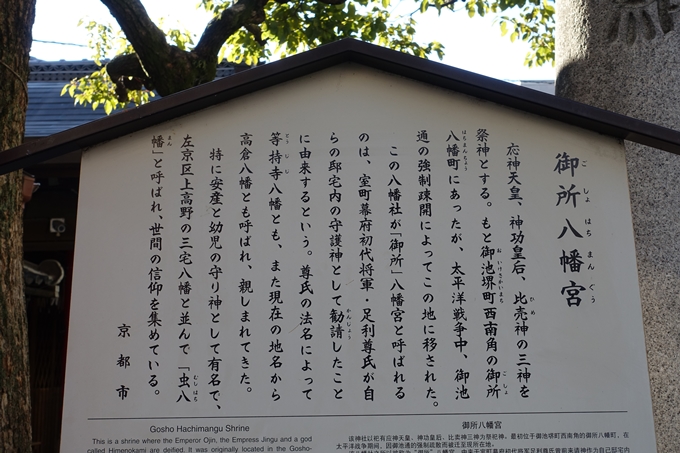 御所八幡宮
ごしょはちまんぐう
応神天皇、神功皇后、比売神の三神を
祭神とする。もと御池堺町西南角の御所
八幡町にあったが、太平洋戦争中、御池
通の強制疎開によってこの地に移された。
この八幡社が「御所」八幡宮と呼ばれる
のは、室町幕府初代将軍・足利尊氏が自
らの邸宅内の守護神として勧請したこと
に由来するという。尊氏の法名によって
等持寺八幡とも、また現在の地名から
高倉八幡とも呼ばれ、親しまれてきた。
特に安産と幼児の守り神として有名で、
左京区上高野の三宅八幡と並んで「虫八
幡」と呼ばれ、世間の信仰を集めている。
京都市
Gosho Hachimangu Shrine
This is a shrine where the Emperor Ojin, the Empress Jingu and a god
called Himenokami are deified. It was originally located in the Gosho-
御所八幡宮
该神社以祀有应神天皇、神功皇后、比卖神三神为祭祀神。最初位于御池堺町西南角的御所八幡町，在
太平洋战争期间，因御池通的强制疏散而被迁至现所在地。